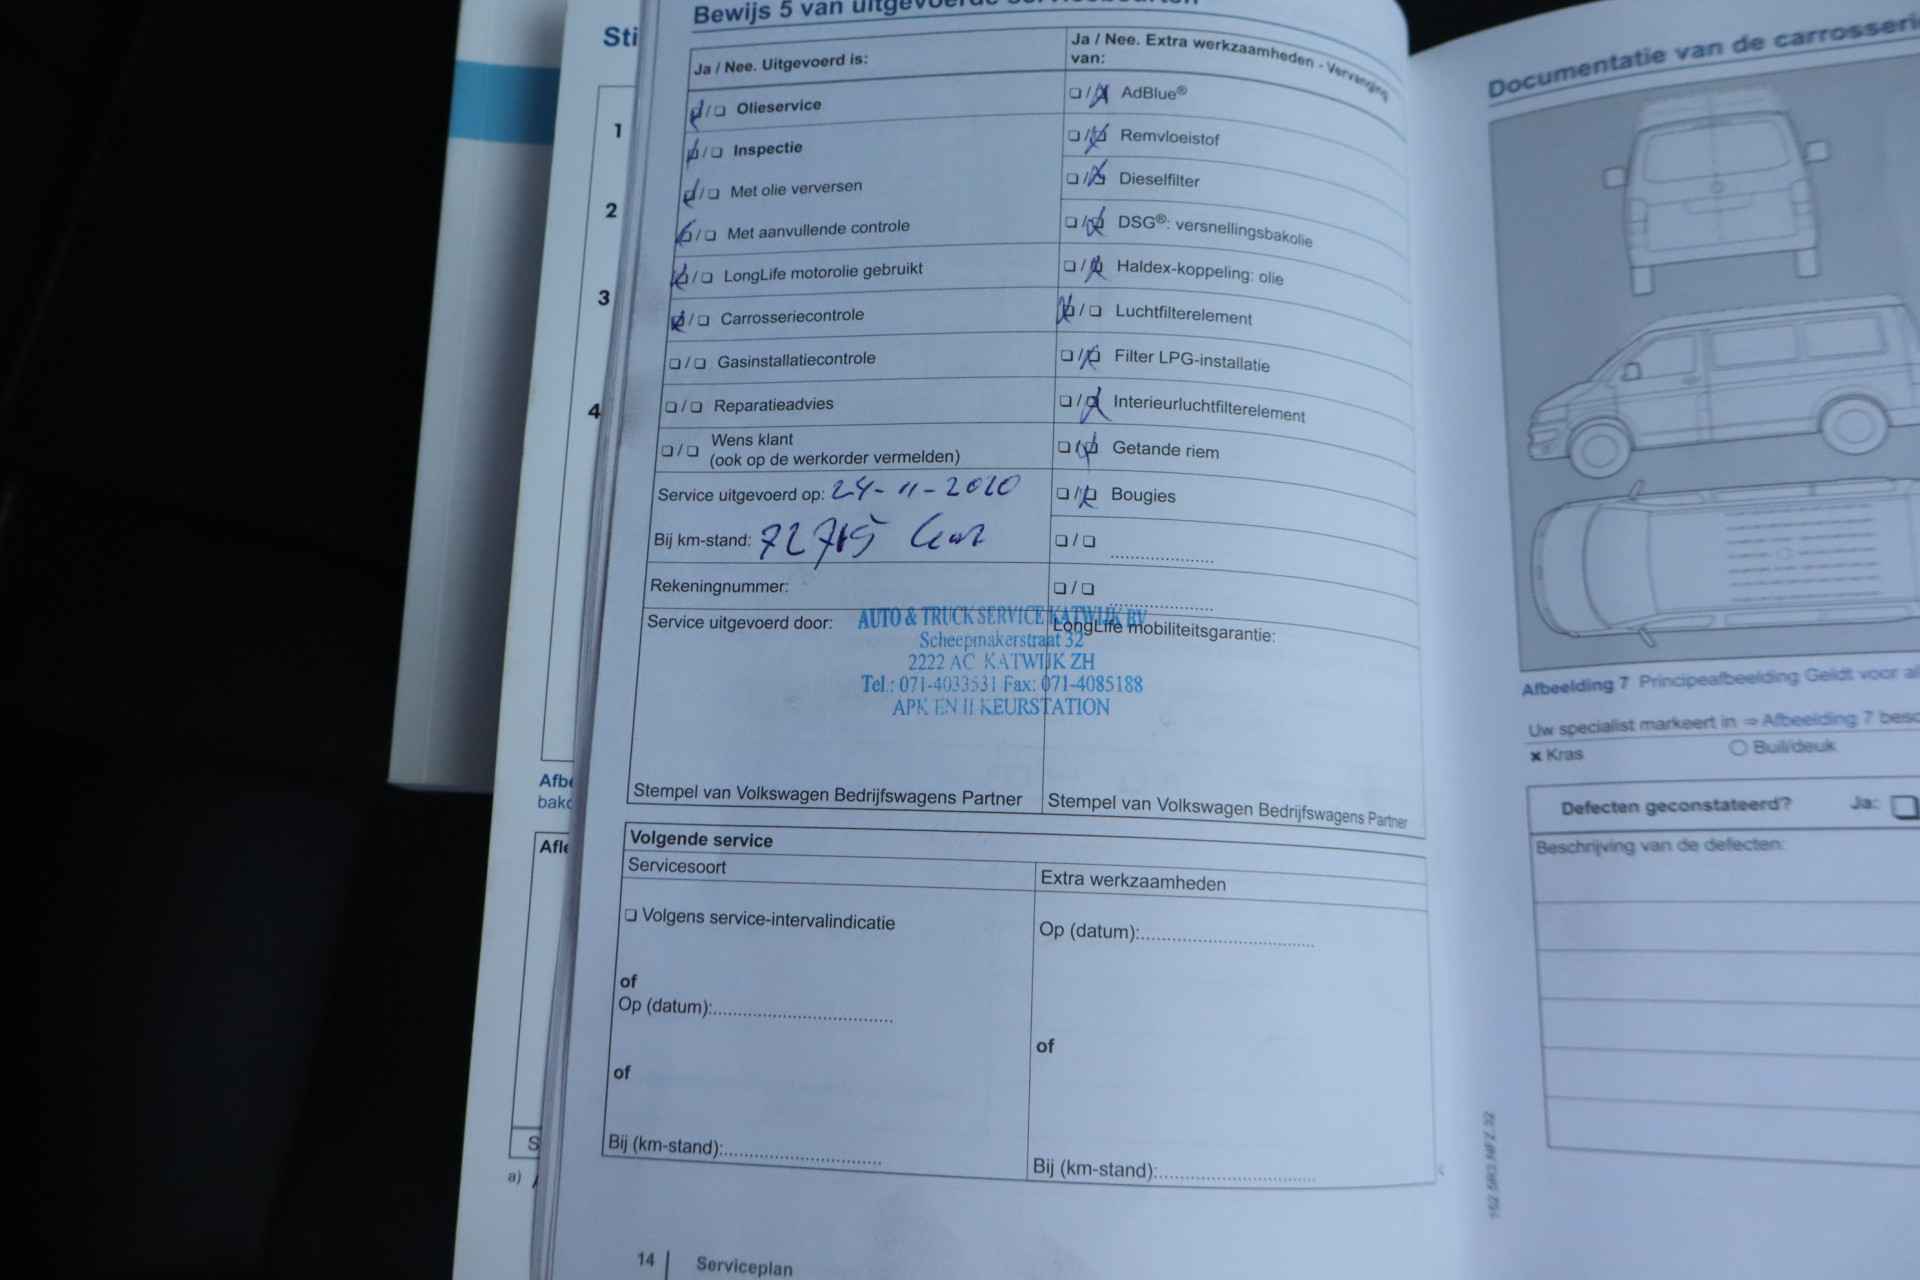 Sti
1
2
3
4
Afbe
Afle
S
a)
Bewijs 5 van uitgevoerde servicebeurten
Ja / Nee. Uitgevoerd is:
Olieservice
Inspectie
Met olie verversen
Met aanvullende controle
LongLife motorolie gebruikt
Carrosseriecontrole
Gasinstallatiecontrole
Reparatieadvies
Wens klant
(ook op de werkorder vermelden)
Service uitgevoerd op: 24-11-2020
Bij km-stand: 72715 km
Rekeningnummer:
Service uitgevoerd door:
Ja / Nee. Extra werkzaamheden - Vervanging
van:
AdBlue®
Remvloeistof
Dieselfilter
DSG®: versnellingsbakolie
Haldex-koppeling: olie
Luchtfilterelement
Filter LPG-installatie
Interieurluchtfilterelement
Getande riem
Bougies
LongLife mobiliteitsgarantie:
AUTO & TRUCK SERVICE KATWIJK BV
Scheepmakerstraat 32
2222 AC KATWIJK ZH
Tel.: 071-4033531 Fax: 071-4085188
APK EN II KEURSTATION
Stempel van Volkswagen Bedrijfswagens Partner
Stempel van Volkswagen Bedrijfswagens Partner
Volgende service
Servicesoort
Volgens service-intervalindicatie
of
Op (datum):
of
Bij (km-stand):
Extra werkzaamheden
Op (datum):
of
Bij (km-stand):
14 Serviceplan
Documentatie van de carrosseri
Afbeelding 7 Principeafbeelding Geldt voor al
Uw specialist markeert in ⇒ Afbeelding 7 besc
Kras
Buil/deuk
Defecten geconstateerd? Ja:
Beschrijving van de defecten: